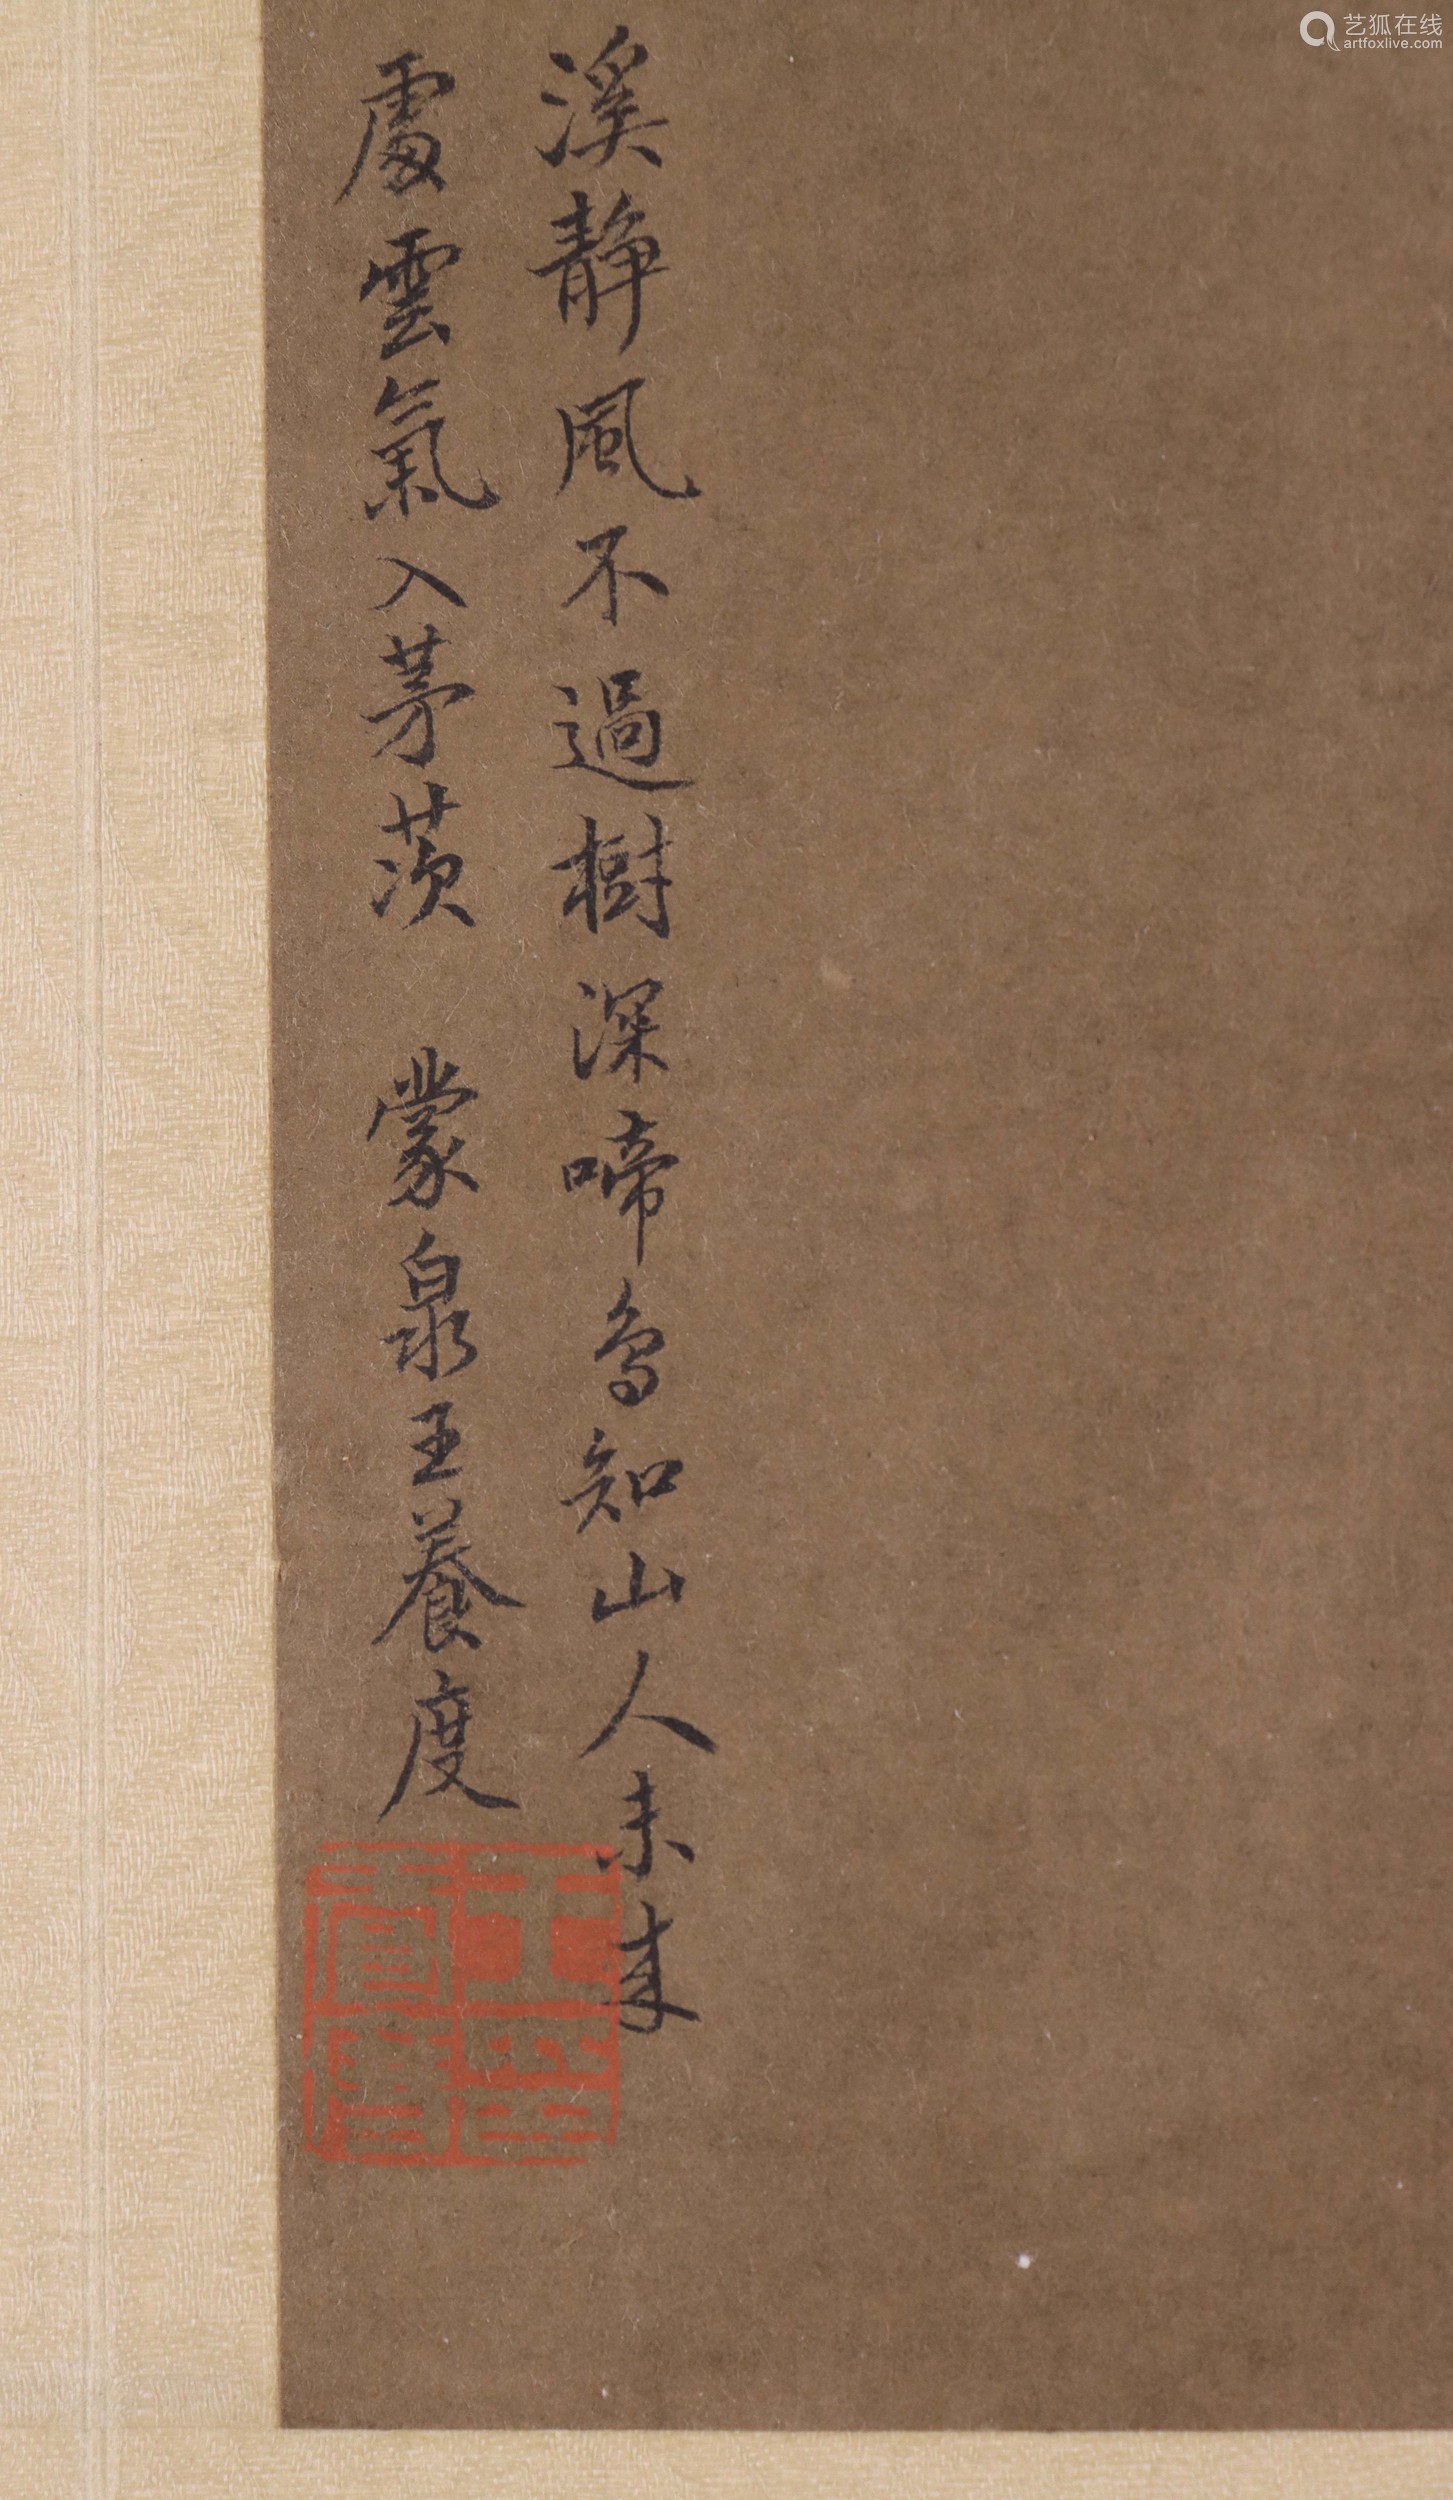 艺狐在线
artfoxlive.com
溪靜風不過樹深啼鳥知山人未來
處雲氣入茅茨 蒙泉王養度